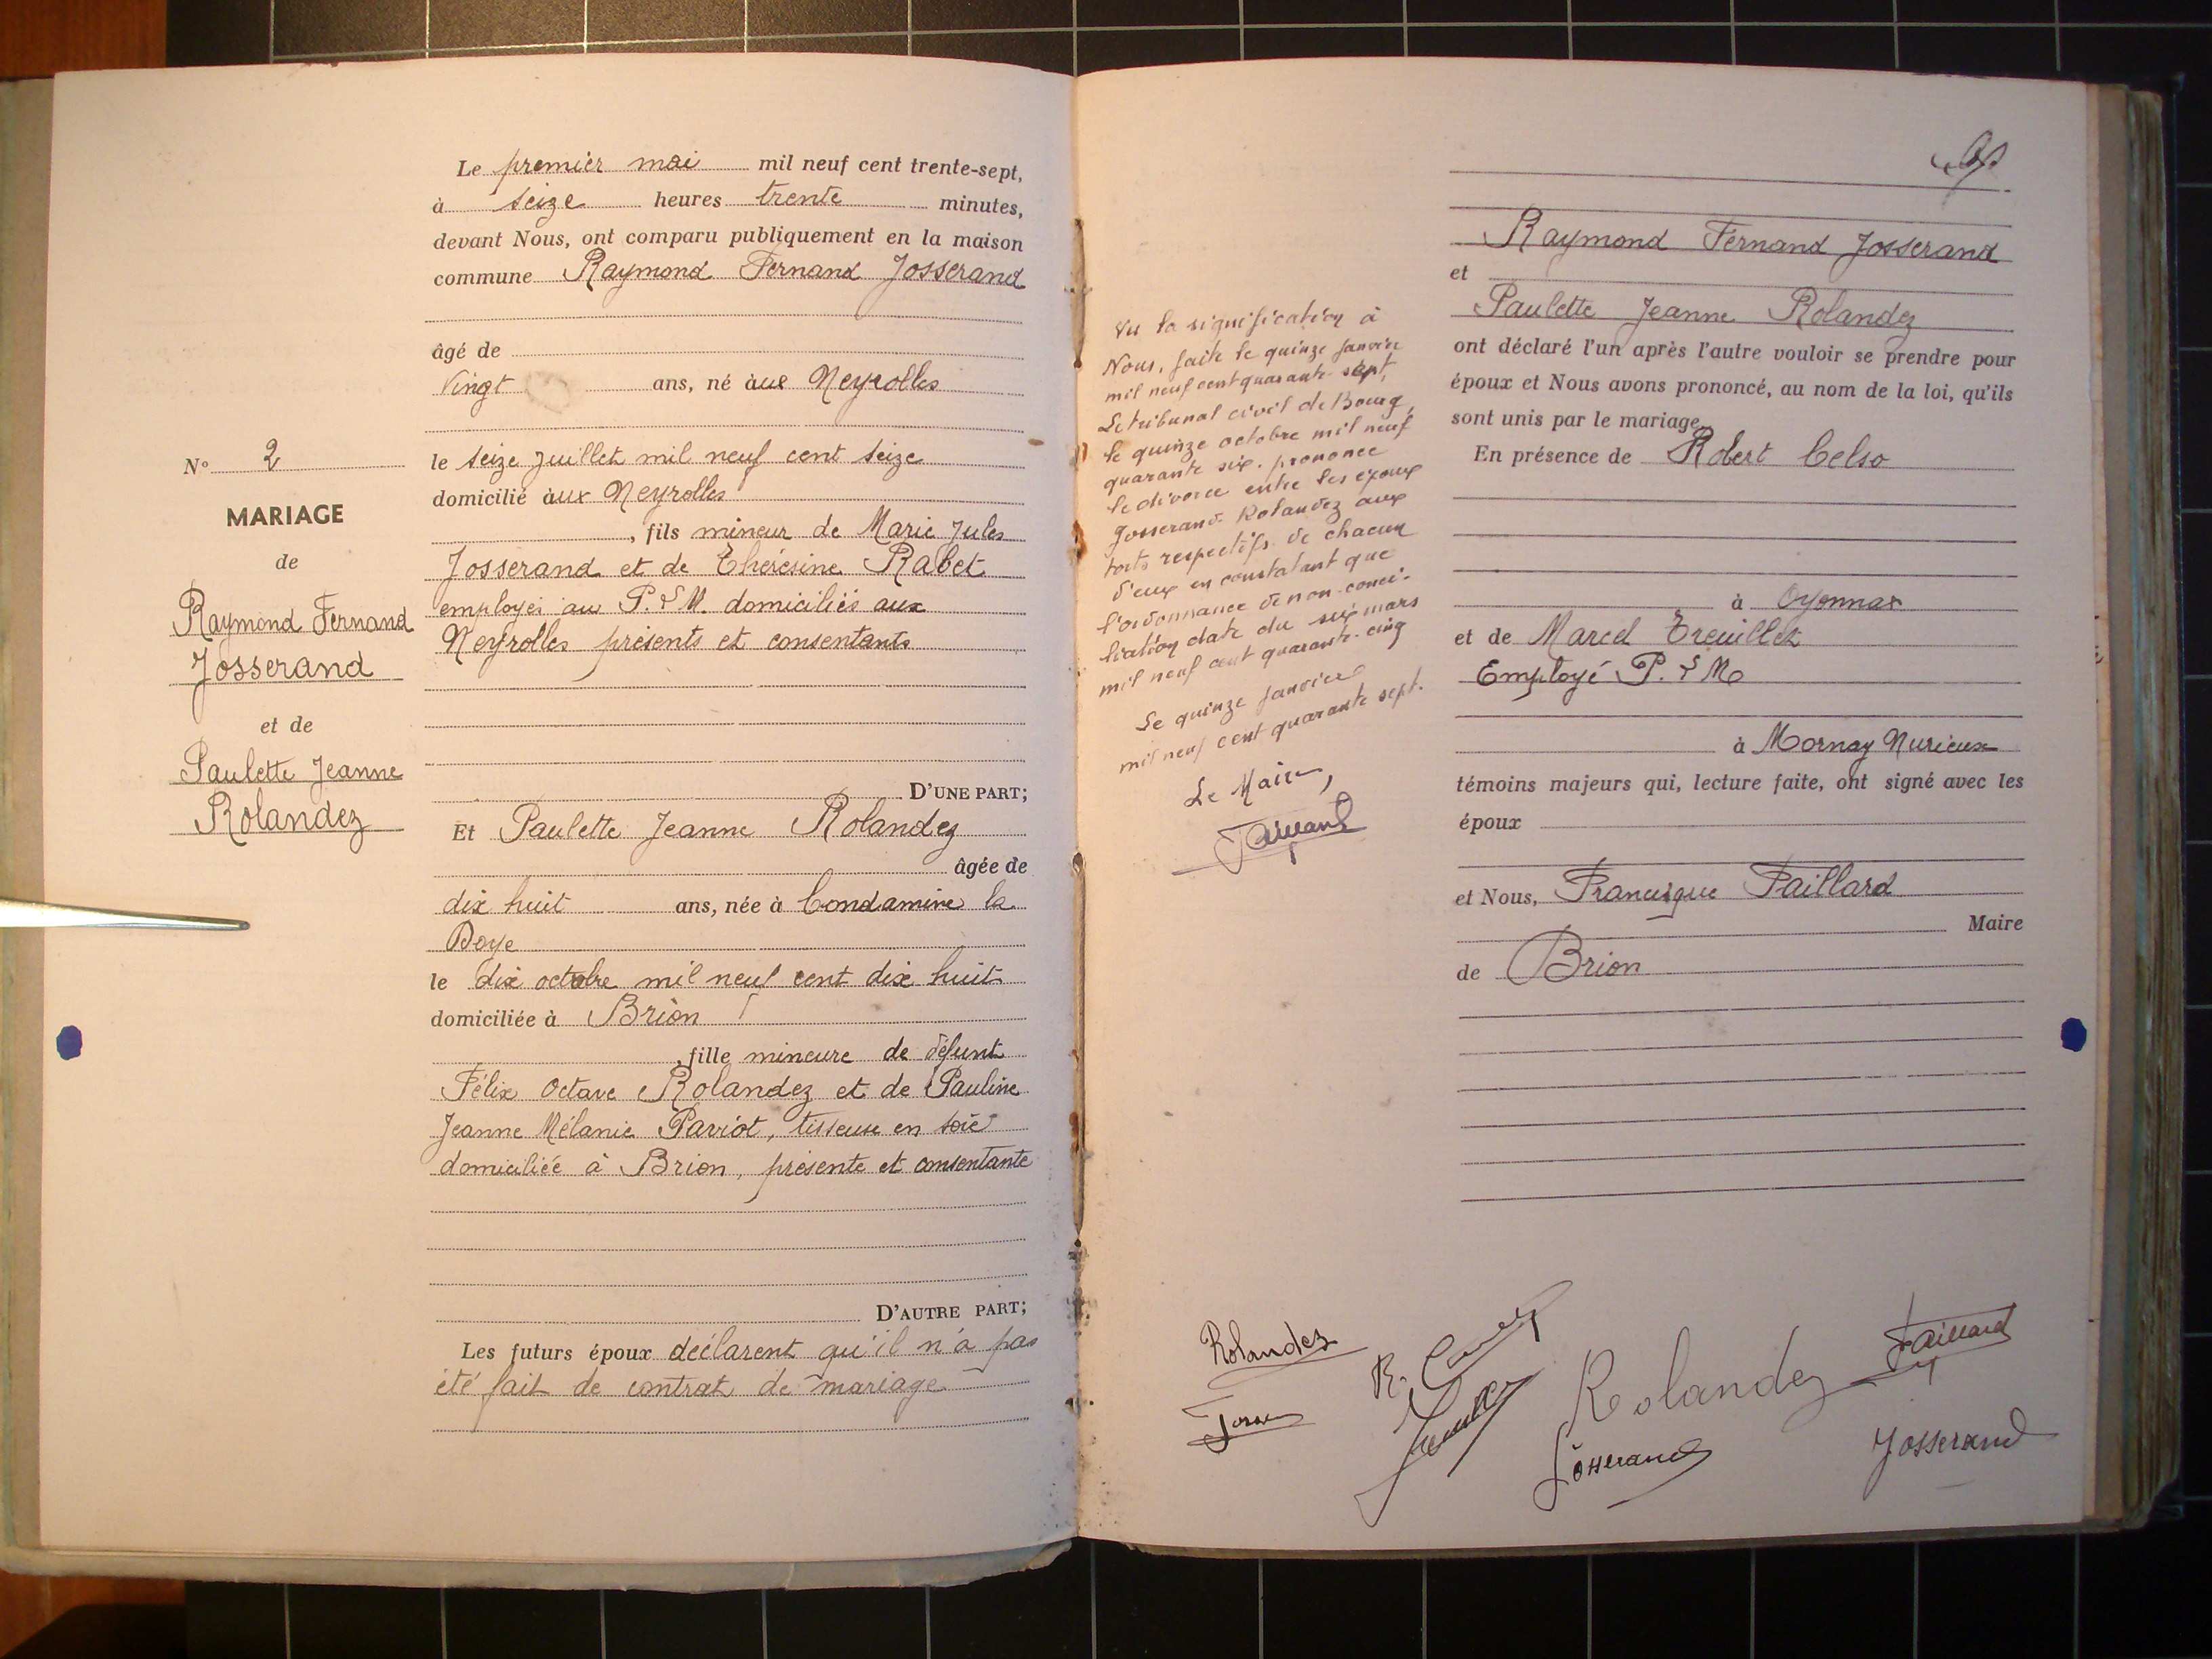 Le premier mai mil neuf cent trente-sept,
à seize heures trente minutes,
devant Nous, ont comparu publiquement en la maison
commune Raymond Fernand Josserand
âgé de
Vingt ans, né àux Neyrolles
le seize Juillet mil neuf cent seize
domicilié àux Neyrolles
, fils mineur de Marie Jules
Josserand et de Thérésine Rabet
employés au P.L.M. domiciliés aux
Neyrolles présents et consentants
D'UNE PART;
Et Paulette Jeanne Rolandez
âgée de
dix huit ans, née à Condamine la
Doye
le dix octobre mil neuf cent dix huit
domiciliée à Brion
, fille mineure de défunt
Félix Octave Rolandez et de Pauline
Jeanne Mélanie Paviot, tisseuse en soie
domiciliée à Brion, présente et consentante
D'AUTRE PART;
Les futurs époux déclarent qu'il n'a pas
été fait de contrat de mariage
N° 2
MARIAGE
de
Raymond Fernand
Josserand
et de
Paulette Jeanne
Rolandez
Vu la signification à
Nous, faite le quinze Janvier
mil neuf cent quarante sept,
Le tribunal civil de Bourg,
le quinze octobre mil neuf
quarante six. prononce
le divorce entre les époux
Josserand-Rolandez aux
torts respectifs de chacun
d'eux en constatant que
l'ordonnance de non-conci-
liation date du six mars
mil neuf cent quarante-cinq
Le quinze Janvier
mil neuf cent quarante sept.
Le Maire,
Raymond Fernand Josserand
et
Paulette Jeanne Rolandez
ont déclaré l'un après l'autre vouloir se prendre pour
époux et Nous avons prononcé, au nom de la loi, qu'ils
sont unis par le mariage.
En présence de Robert Celso
à Oyonnax
et de Marcel Treuillet
Employé P.L.M.
à Mornay Nurieux
témoins majeurs qui, lecture faite, ont signé avec les
époux
et Nous, Francisque Paillard
Maire
de Brion
Rolandez
Rolandez
Paillard
Josserand
Josserand